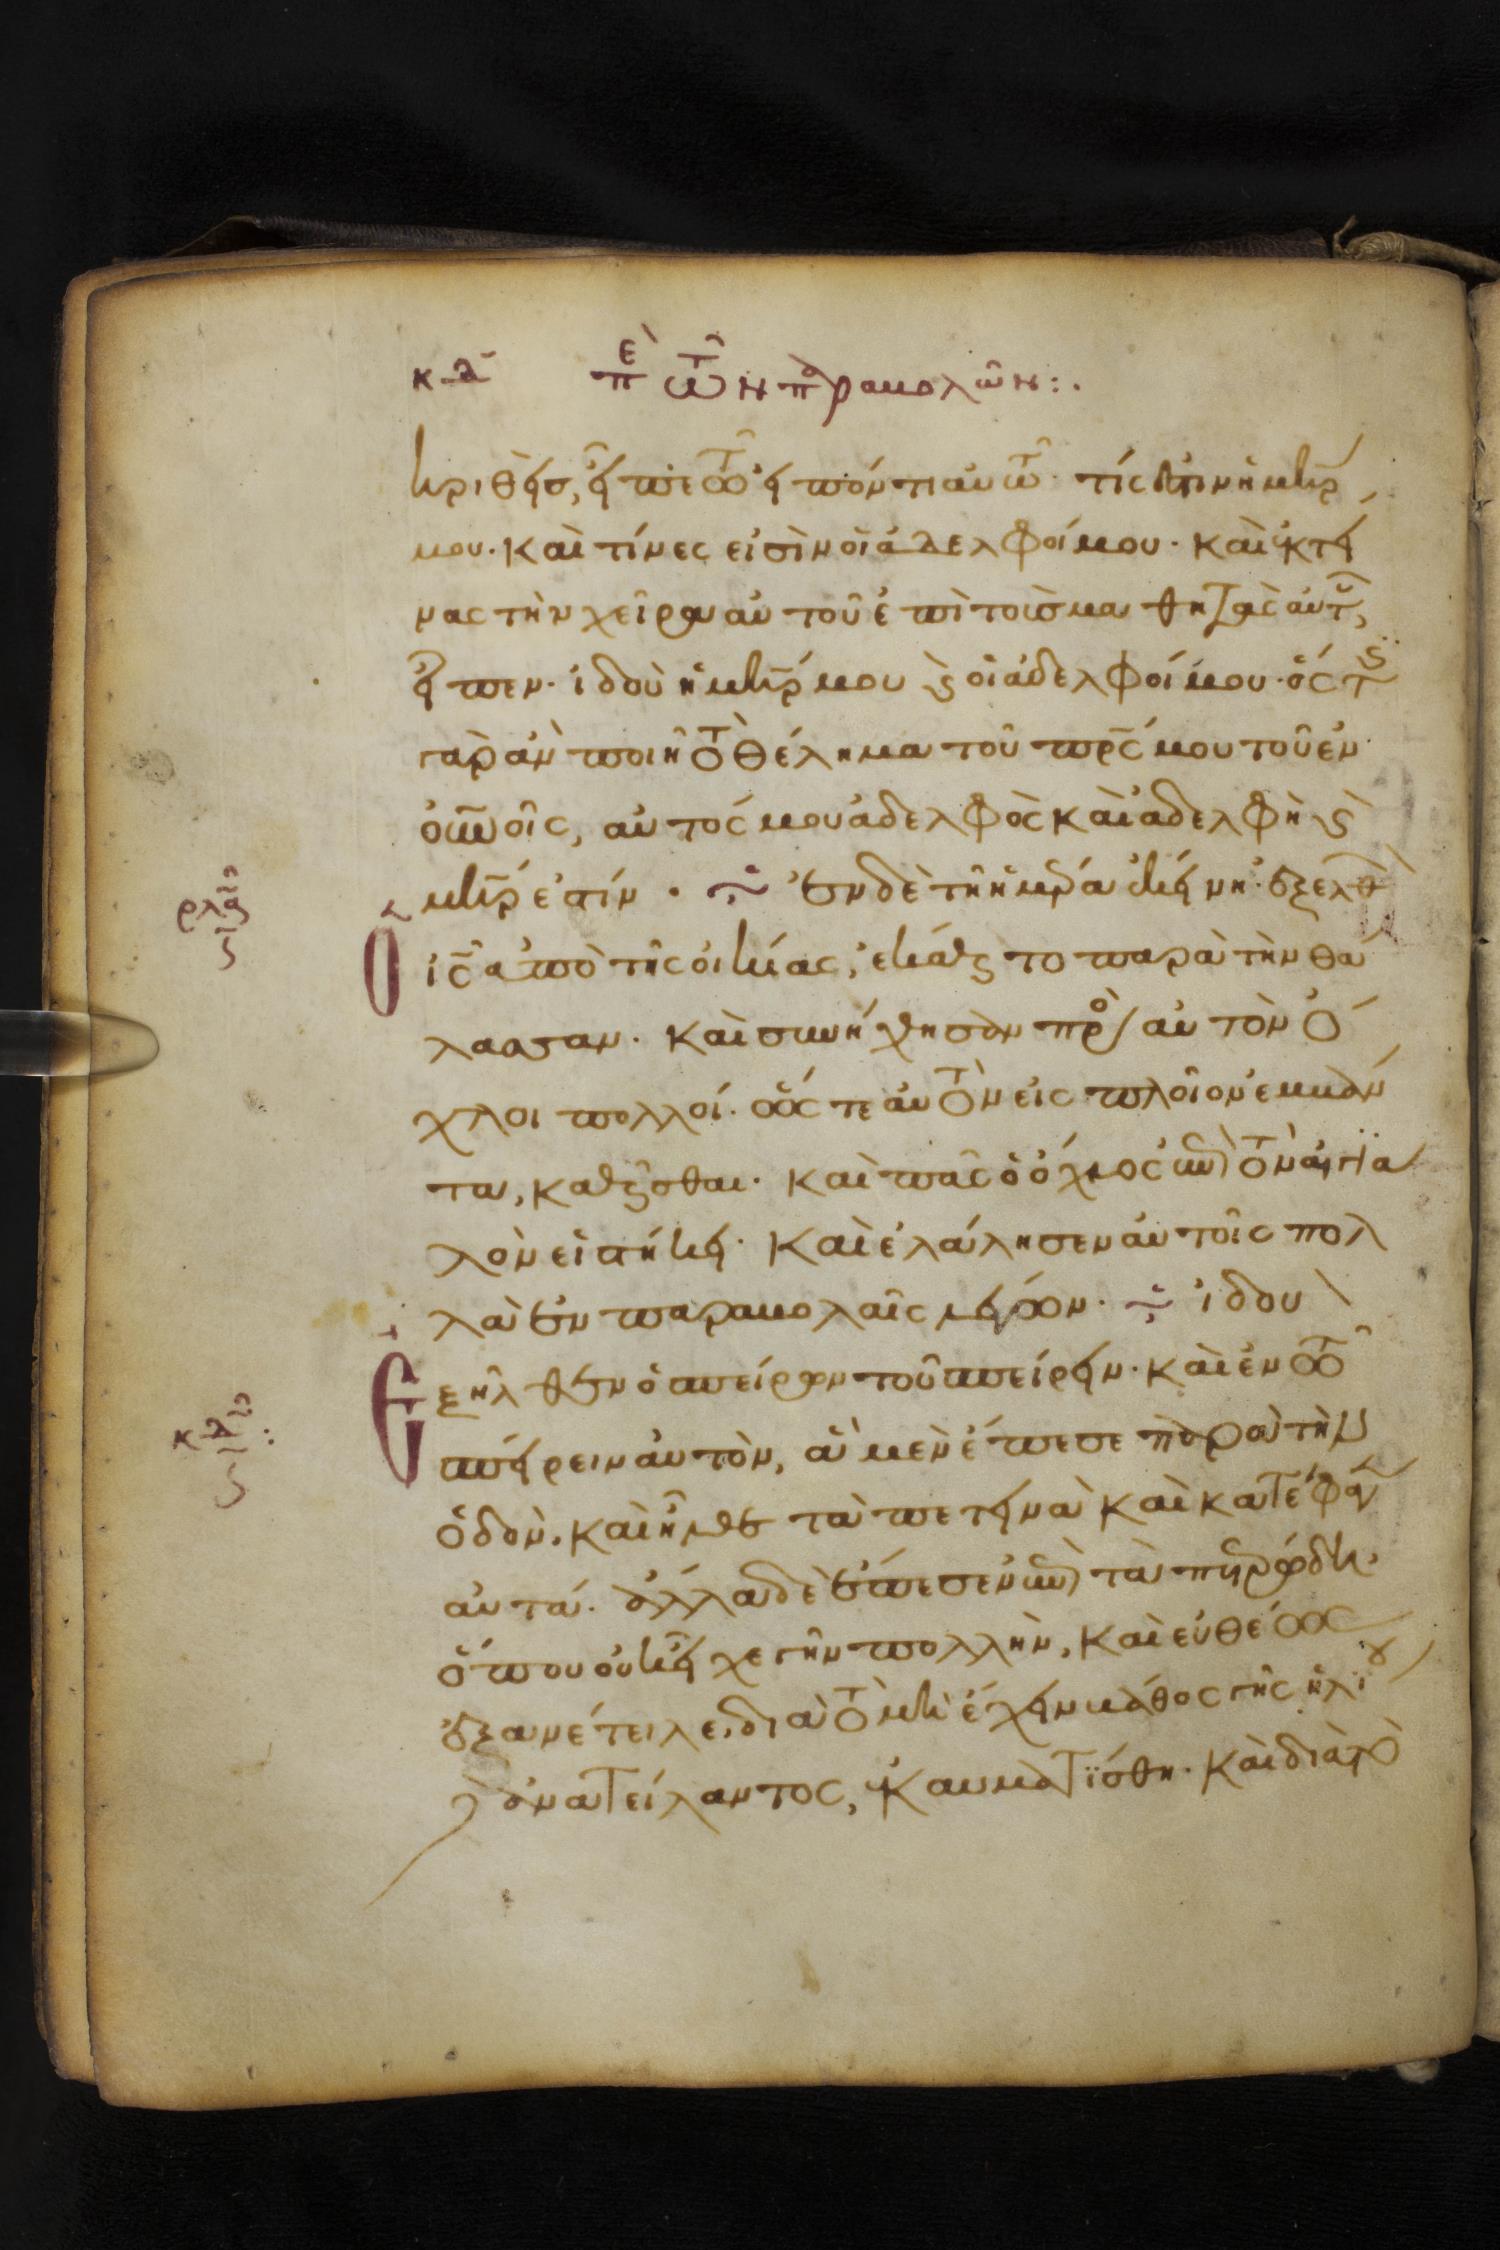 κδ περὶ τῶν παραβολῶν:
κριθεὶς, εἶπε τῶ εἰπόντι αὐτῶ· τίς ἐστιν ἡ μηρ
μου· καὶ τίνες εἰσὶν οἱ ἀδελφοί μου· καὶ ἐκτεί
νας τὴν χεῖρα αὐτοῦ ἐπὶ τοὺς μαθητὰς αὐτοῦ,
εἶπεν· ἰδοὺ ἡ μηρ μου καὶ οἱ ἀδελφοί μου· ὅστις
γὰρ ἂν ποιῆ τὸ θέλημα τοῦ πρς μου τοῦ ἐν
οὐνοῖς, αὐτός μου ἀδελφὸς καὶ ἀδελφὴ καὶ
μηρ ἐστίν. ἐν δὲ τῆ ἡμέρα ἐκείνη· ἐξελθὼν
ὁ ις ἀπὸ τῆς οἰκίας, ἐκάθητο παρὰ τὴν θά
λασσαν· καὶ συνήχθησαν πρὸς αὐτὸν ὄ
χλοι πολλοί· ὥστε αὐτὸν εἰς πλοῖον ἐμβάν
τα, καθῆσθαι· καὶ πᾶς ὁ ὄχλος ἐπὶ τὸν αἰγια
λὸν εἱστήκει· καὶ ἐλάλησεν αὐτοῖς πολ
λὰ ἐν παραβολαῖς λέγων· ἰδοὺ
ἐξῆλθεν ὁ σπείρων τοῦ σπείρειν· καὶ ἐν τῶ
σπείρειν αὐτὸν, ἃ μὲν ἔπεσε παρὰ τὴν
ὁδὸν, καὶ ἦλθε τὰ πετεινὰ καὶ κατέφαγεν
αὐτά· ἄλλα δὲ ἔπεσεν ἐπὶ τὰ πετρώδη,
ὅπου οὐκ εἶχε γῆν πολλὴν, καὶ εὐθέως
ἐξανέτειλε, διὰ τὸ μὴ ἔχειν βάθος γῆς ἡλίου
δὲ ἀνατείλαντος, ἐκαυματίσθη· καὶ διὰ τὸ
ρλα
ς
κδ
ς